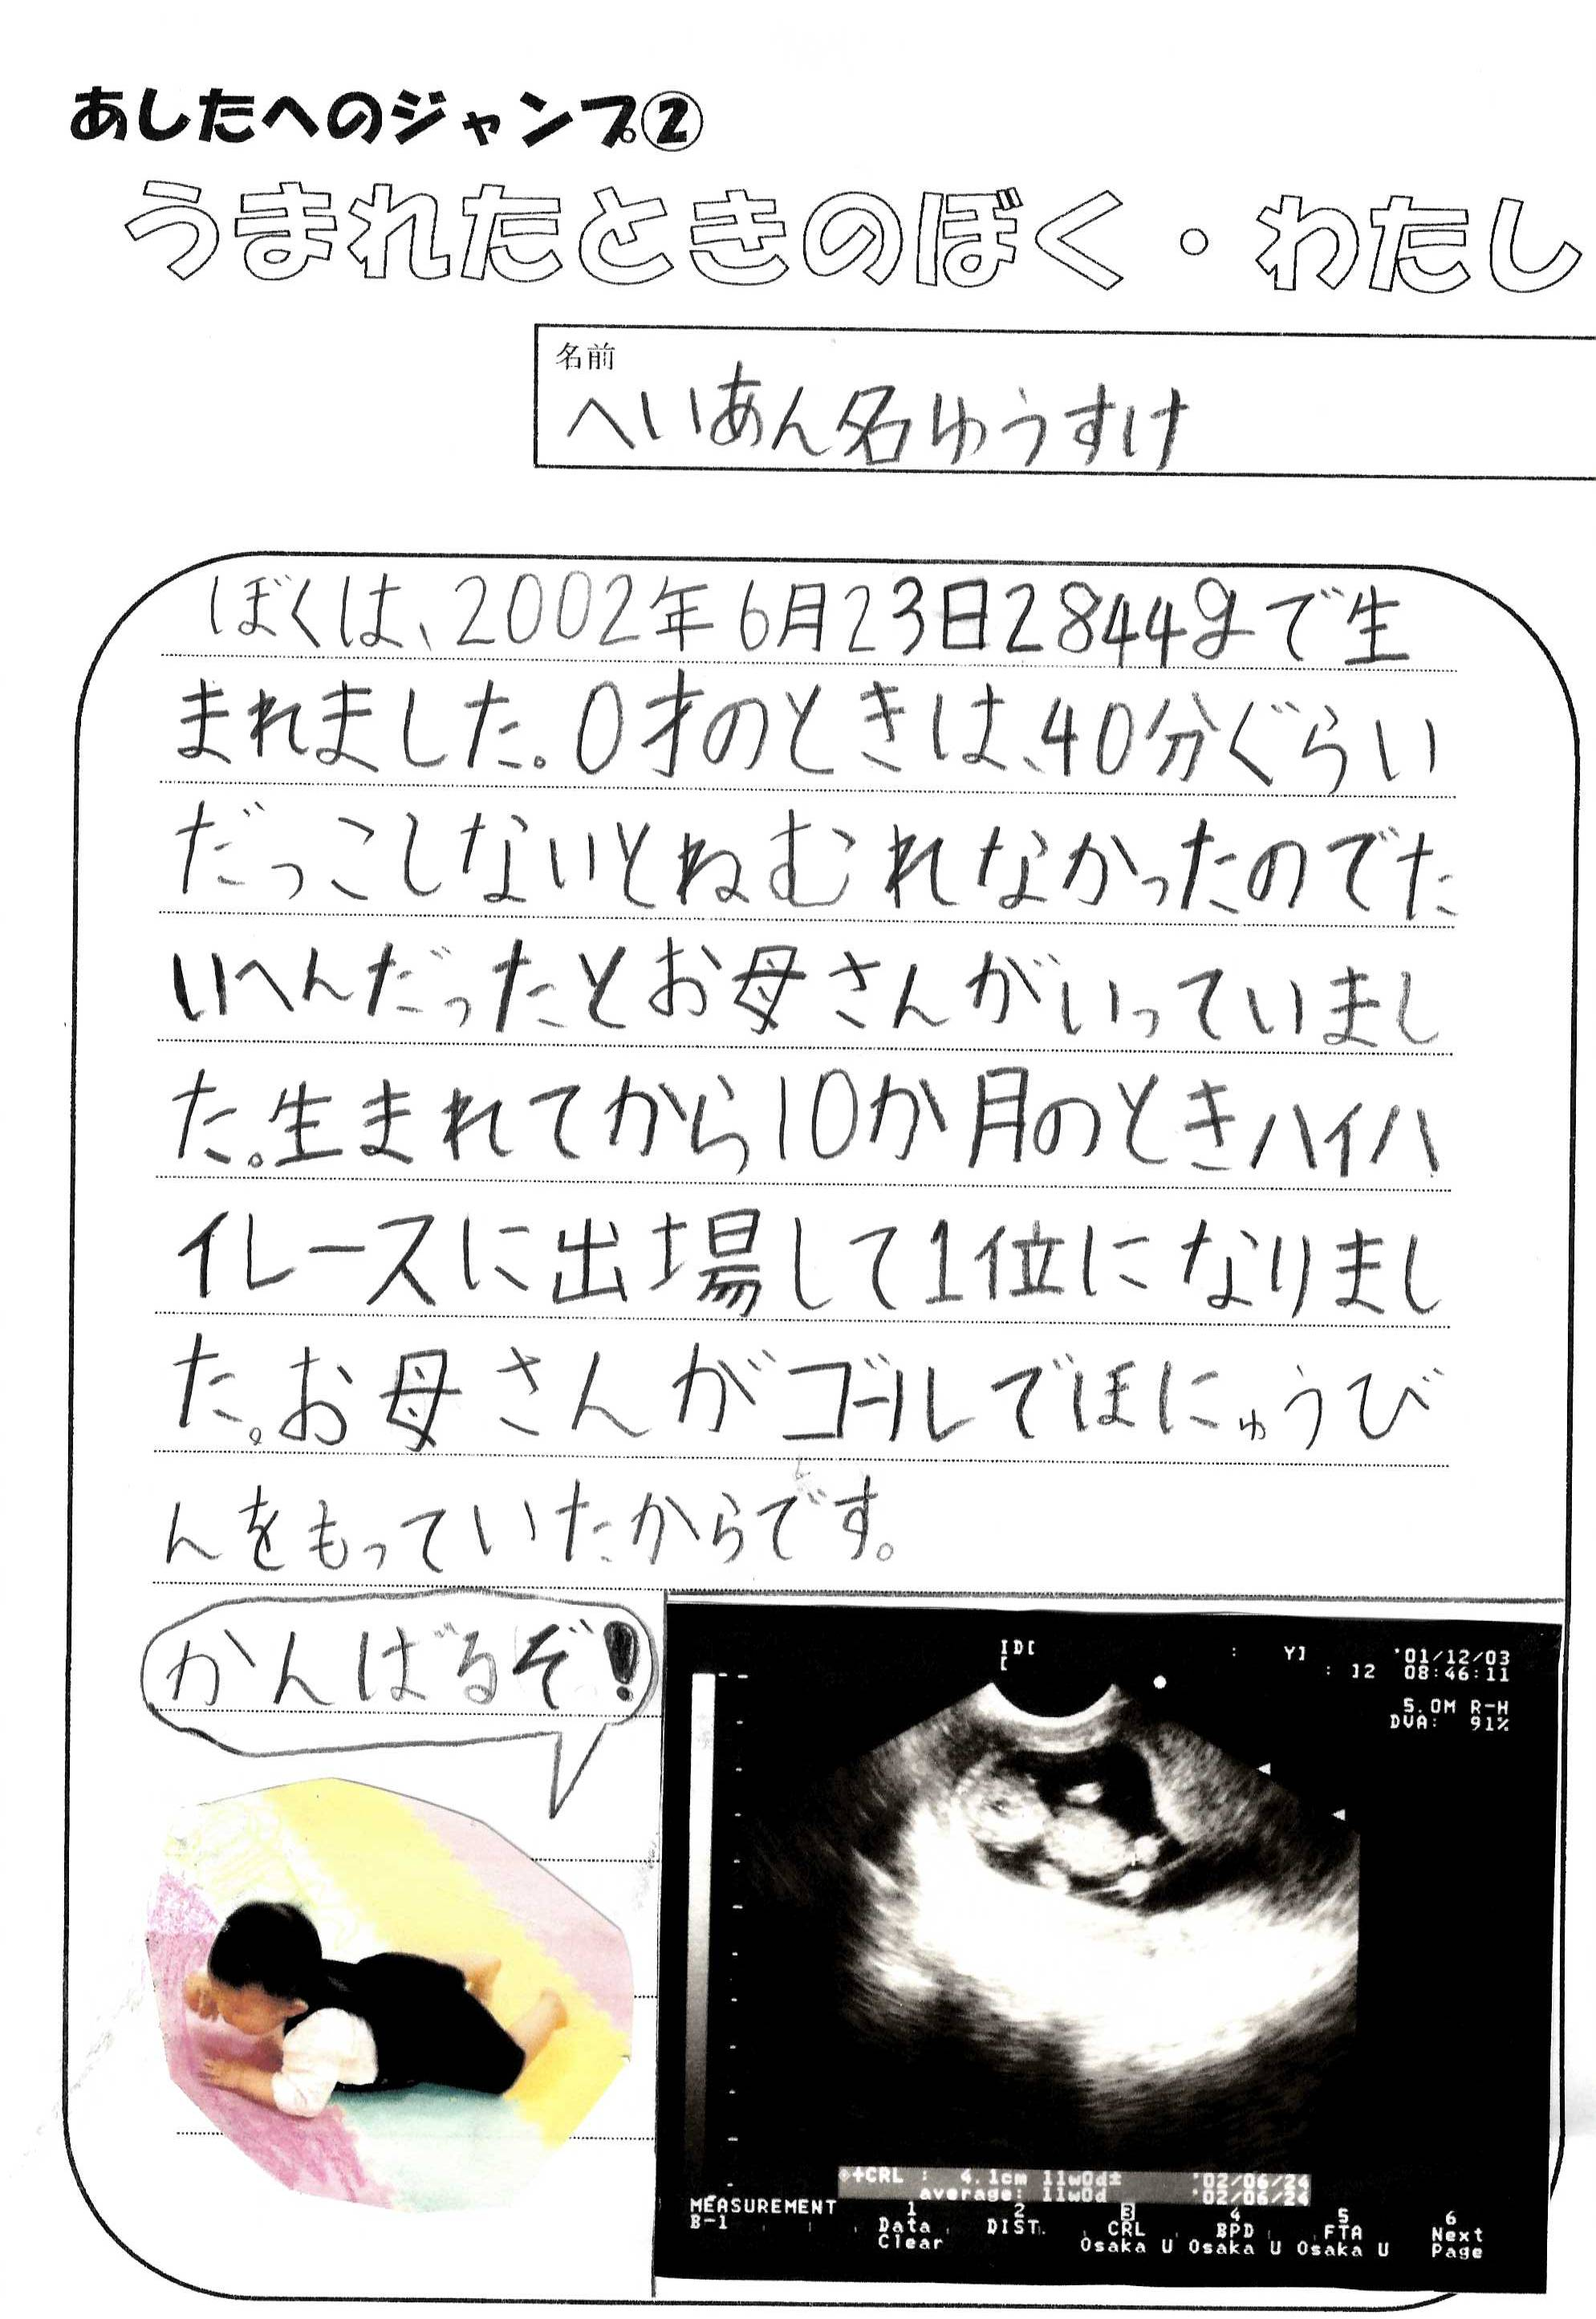 あしたへのジャンプ②
うまれたときのぼく・わたし
名前
へいあん名ゆうすけ
ぼくは、2002年6月23日2844gまで生
まれました。0才のときは、40分ぐらい
だっこしないとねむれなかったのでた
いへんだったとお母さんがいっていまし
た。生まれてから10か月のときハイハ
イレースに出場して1位になりまし
た。お母さんがゴールでほにゅうび
んをもっていたからです。
かんばるぞ!
ID[ : Y] '01/12/03
[ : 12 08:46:11
5.0M R-H
DVA: 91%
+CRL : 4.1cm 11w0d± '02/06/24
average: 11w0d '02/06/24
MEASUREMENT 1 2 3 4 5 6
B-1 Data DIST. CRL BPD FTA Next
Clear Osaka U Osaka U Osaka U Page